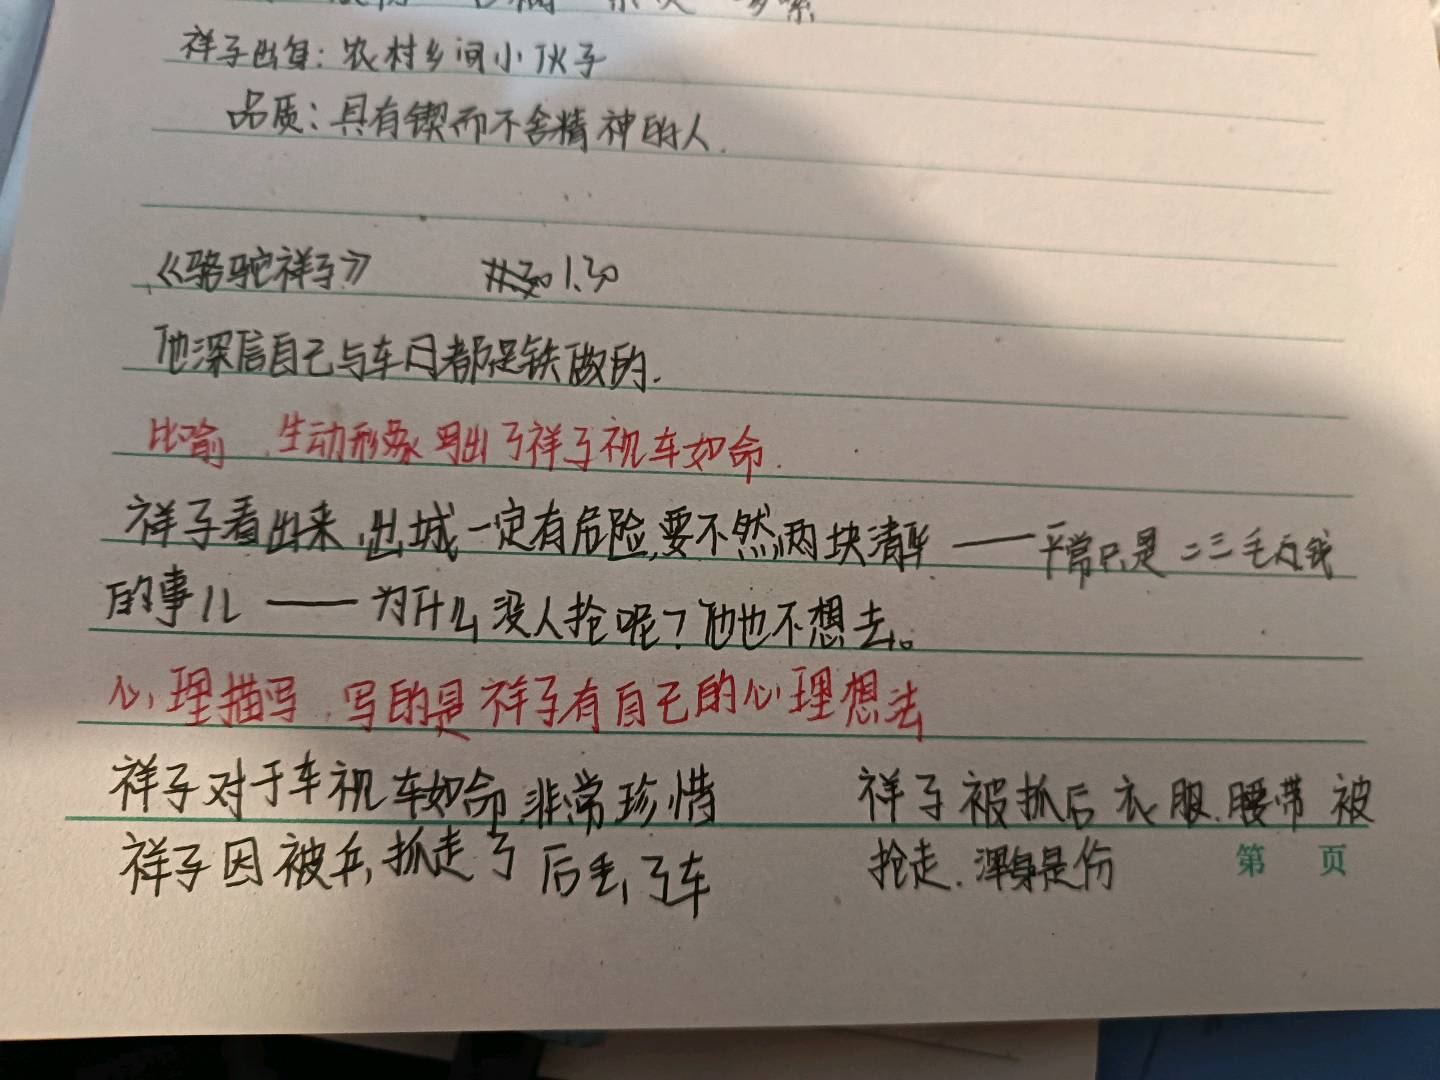 祥子出身：农村乡间小伙子
品质：具有锲而不舍精神的人.
《骆驼祥子》 1.30
他深信自己与车闪都是铁做的.
比喻.生动形象写出了祥子视车如命.
祥子看出来,出城一定有危险,要不然,两块清华——平常只是二三毛的钱
的事儿——为什么没人抢呢？他也不想去。
心理描写.写的是祥子有自己的心理想法
祥子对于车视车如命.非常珍惜
祥子因被兵,抓走了后丢了车
祥子被抓后衣服.腰带被
抢走.浑身是伤
第 页